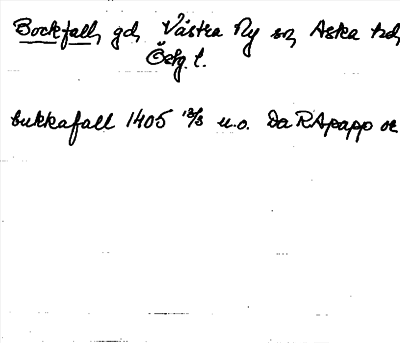 Bockfall, gd, Västra Ny sn, Aska hd,
Ög. l.
bukkafall 1405 18/3 u.o. Da RApapp or